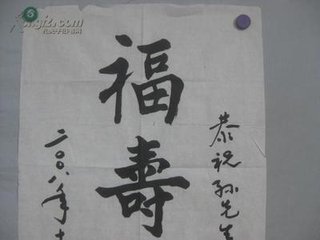 恭祝孙先生
福壽
二〇〇八年十